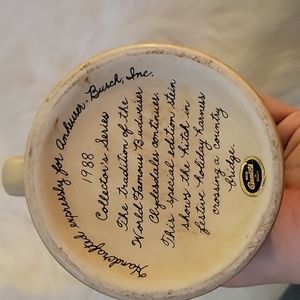 Handcrafted expressly for Anheuser-Busch, Inc.
1988
Collector's Series
The tradition of the
World Famous Budweiser
Clydesdales continues.
This special edition stein
shows the hitch in
festive holiday harness
crossing a country
bridge.